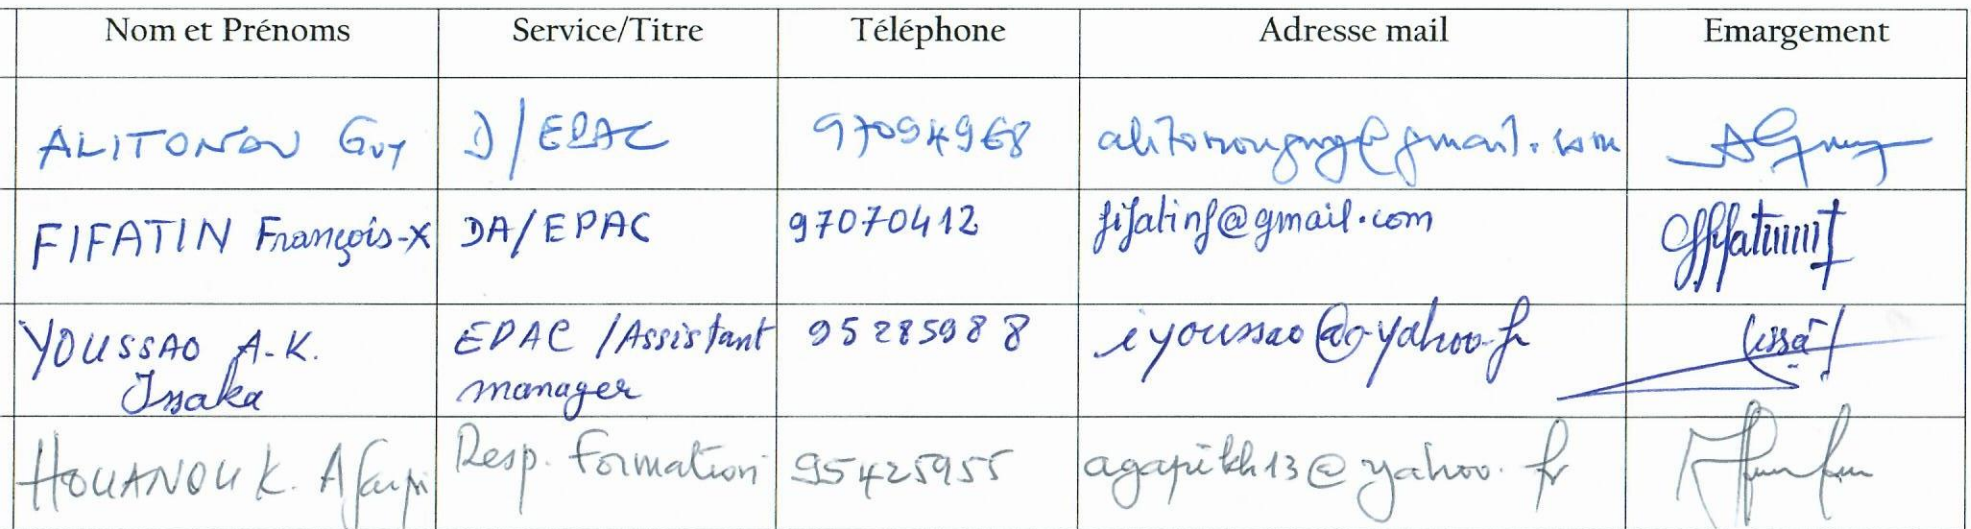 Nom et Prénoms Service/Titre Téléphone Adresse mail Emargement
ALITONOU Guy D/EPAC 97094968 alitonouguy@gmail.com
FIFATIN François-X DA/EPAC 97070412 fifatinf@gmail.com
YOUSSAO A.K. Issaka EPAC/Assistant manager 95285988 iyoussao@yahoo.fr
HOUANOU K. Agapi Resp. Formation 95425955 agapikh13@yahoo.fr